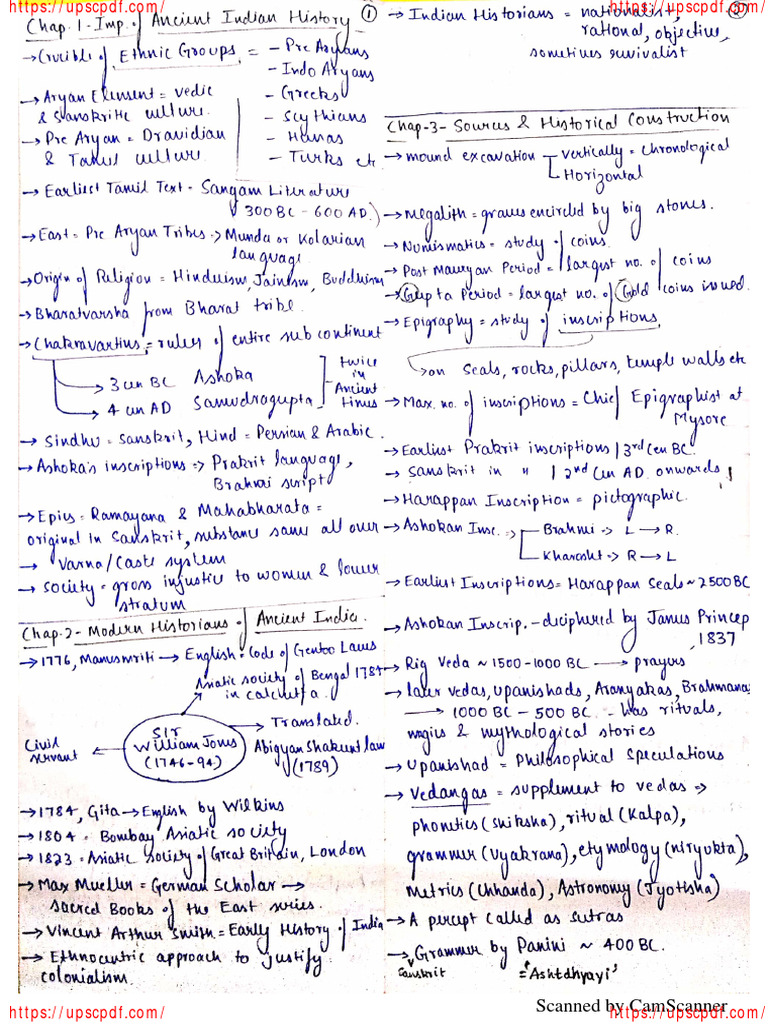 https://upscpdf.com/
https://upscpdf.com/
Chap.1-Imp. of Ancient Indian History
①
→ Crucible of Ethnic Groups =
- Pre Aryans
- Indo Aryans
- Greeks
- Scythians
- Hunas
- Turks etc
→ Aryan Element = vedic
& Sanskritic culture.
→ Pre Aryan = Dravidian
& Tamil culture
→ Earliest Tamil Text - Sangam Literature
300 BC - 600 AD.)
→ East = Pre Aryan Tribes → Munda or Kolarian
language
→ Origin of Religion = Hinduism, Jainism, Buddhism
→ Bharatvarsha from Bharat tribe.
→ Chakravartins = rules of entire sub continent
→ 3 cen BC Ashoka
→ 4 cen AD Samudragupta
twice
in
Ancient
times
→ Sindhu = Sanskrit, Hind = Persian & Arabic.
→ Ashoka's inscriptions → Prakrit language,
Brahmi script
→ Epics = Ramayana & Mahabharata =
original in Sanskrit, substance same all over
→ Varna/Caste system
→ society = gross injustice to women & lower
stratum
Chap.2- Modern Historians of Ancient India.
→ 1776, Manusmriti → English = Code of Gentoo Laws
Asiatic society of Bengal 1784
in calcutta.
Sir
William Jones
(1746-94)
Civil
servant
→ Translated.
Abigyan Shakuntlaw
(1789)
→ 1784, Gita → English by Wilkins
→ 1804 = Bombay Asiatic society
→ 1823 = Asiatic society of Great Britain, London
→ Max Mueller = German Scholar →
sacred Books of the East series.
→ Vincent Arthur Smith = Early History of India
→ Ethnocentric approach to justify
colonialism.
②
→ Indian Historians = nationalist,
rational, objective,
sometimes revivalist
Chap-3- Sources & Historical Construction
→ mound excavation
vertically = Chronological
Horizontal
→ Megalith = graves encircled by big stones.
→ Numismatics = study of coins.
→ Post Mauryan Period = largest no. of coins
→ Gupta Period = largest no. of Gold coins issued.
→ Epigraphy = study of inscriptions,
→ on seals, rocks, pillars, temple walls etc
→ Max. no. of inscriptions = Chief Epigraphist at
Mysore
→ Earliest Prakrit inscriptions | 3rd Cen BC.
→ Sanskrit in " | 2nd Cen AD. onwards
→ Harappan Inscription = pictographic.
→ Ashokan Insc. →
Brahmi → L → R.
Kharosht → R → L
→ Earliest Inscriptions = Harappan Seals ~ 2500 BC
→ Ashokan Inscrip. - deciphered by James Princep
1837
→ Rig Veda ~ 1500-1000 BC → prayers
→ later vedas, Upanishads, Aranyakas, Brahmanas
→ 1000 BC - 500 BC. - has rituals,
magics & mythological stories
→ Upanishad = Philosophical Speculations
→ Vedangas = supplement to vedas ⇒
phonetics (Shiksha), ritual (Kalpa),
grammer (Vyakrana), etymology (niryukta),
Metrics (Chhanda), Astronomy (Jyotisha)
→ A percept called as sutras
→ Grammer by Panini ~ 400 BC.
Sanskrit
= 'Ashtdhyayi'
Scanned by CamScanner
https://upscpdf.com/
https://upscpdf.com/